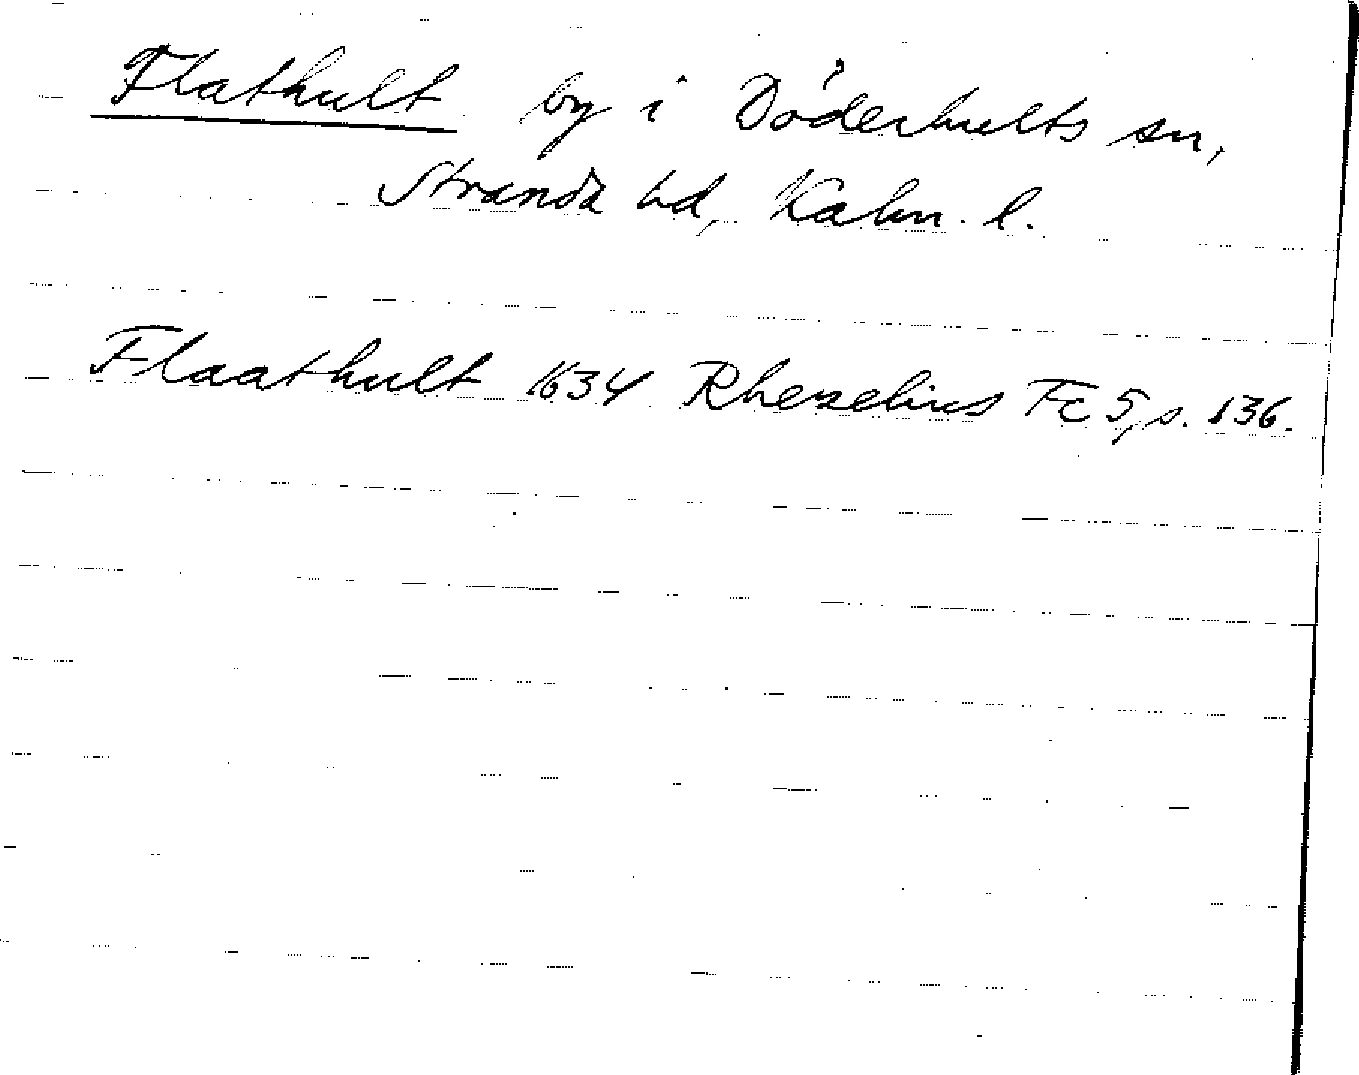 Flathult by i Döderhults sn,
Stranda hd, Kalm. l.
Flaathult 1634 Rhezelius Fc 5, s. 136.